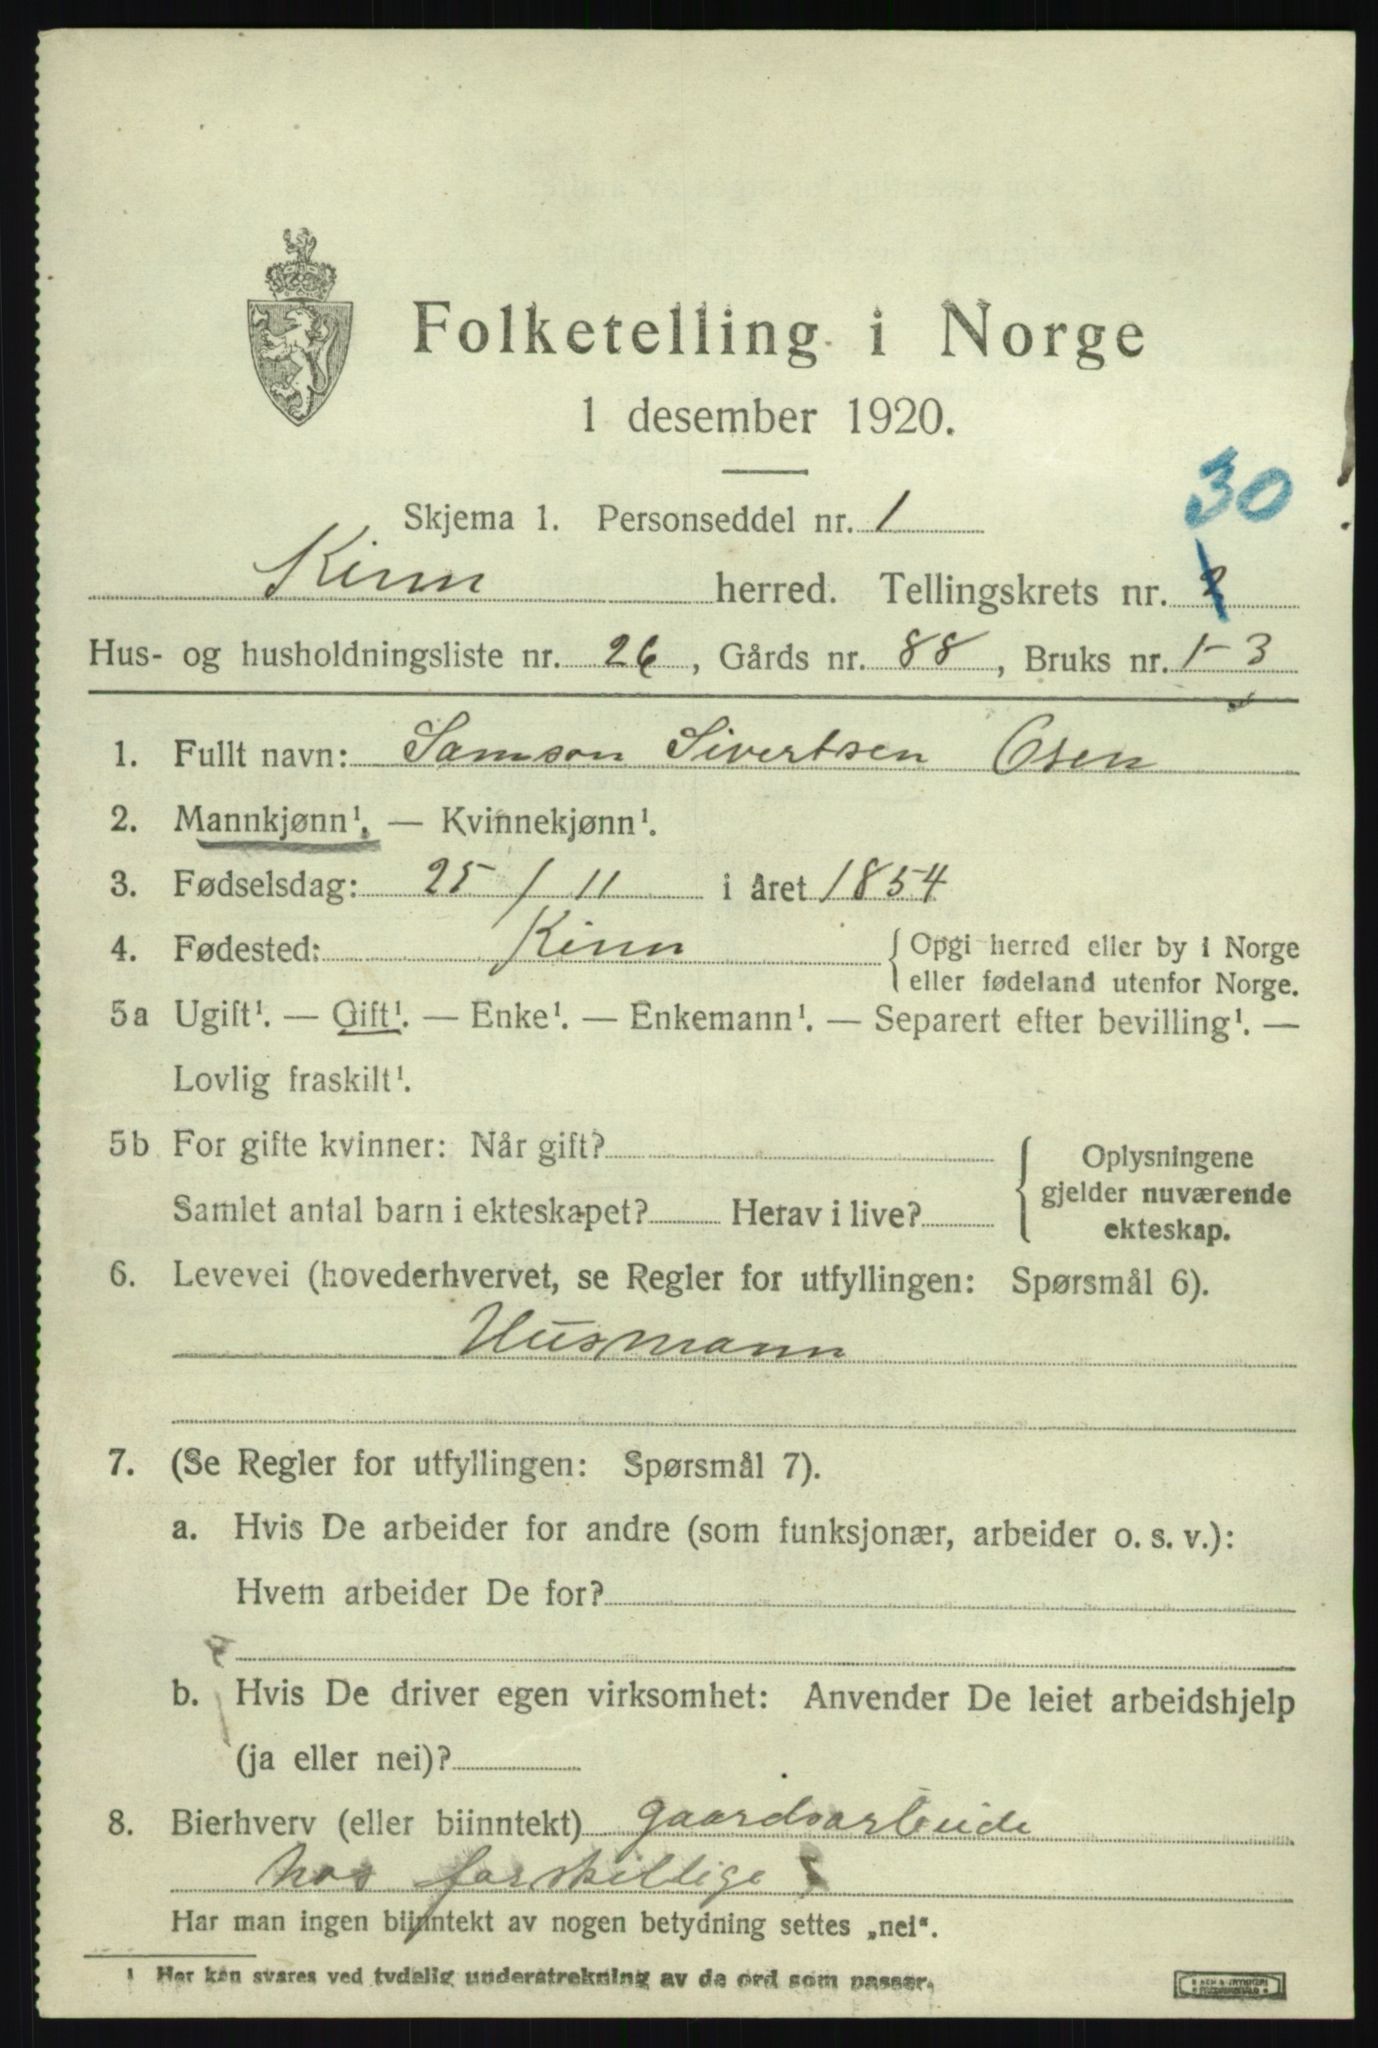 Folketelling i Norge
1 desember 1920.
30
Skjema 1. Personseddel nr. 1
Kinn herred. Tellingskrets nr.
Hus- og husholdningsliste nr. 26, Gårds nr. 88, Bruks nr. 1-3
1. Fullt navn: Samson Sivertsen Osen
2. Mannkjønn¹. — Kvinnekjønn¹.
3. Fødselsdag: 25 / 11 i året 1854
4. Fødested: Kinn { Opgi herred eller by i Norge
eller fødeland utenfor Norge.
5a Ugift¹. — Gift¹. — Enke¹. — Enkemann¹. — Separert efter bevilling¹. —
Lovlig fraskilt¹.
5b For gifte kvinner: Når gift?
Samlet antal barn i ekteskapet? Herav i live?
{ Oplysningene
gjelder nuværende
ekteskap.
6. Levevei (hovederhvervet, se Regler for utfyllingen: Spørsmål 6).
Husmann
7. (Se Regler for utfyllingen: Spørsmål 7).
a. Hvis De arbeider for andre (som funksjonær, arbeider o. s. v.):
Hvem arbeider De for?
b. Hvis De driver egen virksomhet: Anvender De leiet arbeidshjelp
(ja eller nei)?
8. Bierhverv (eller biinntekt) gaardsarbeide
hos forskillige
Har man ingen biinntekt av nogen betydning settes „nei“.
¹ Her kan svares ved tydelig understrekning av de ord som passer.